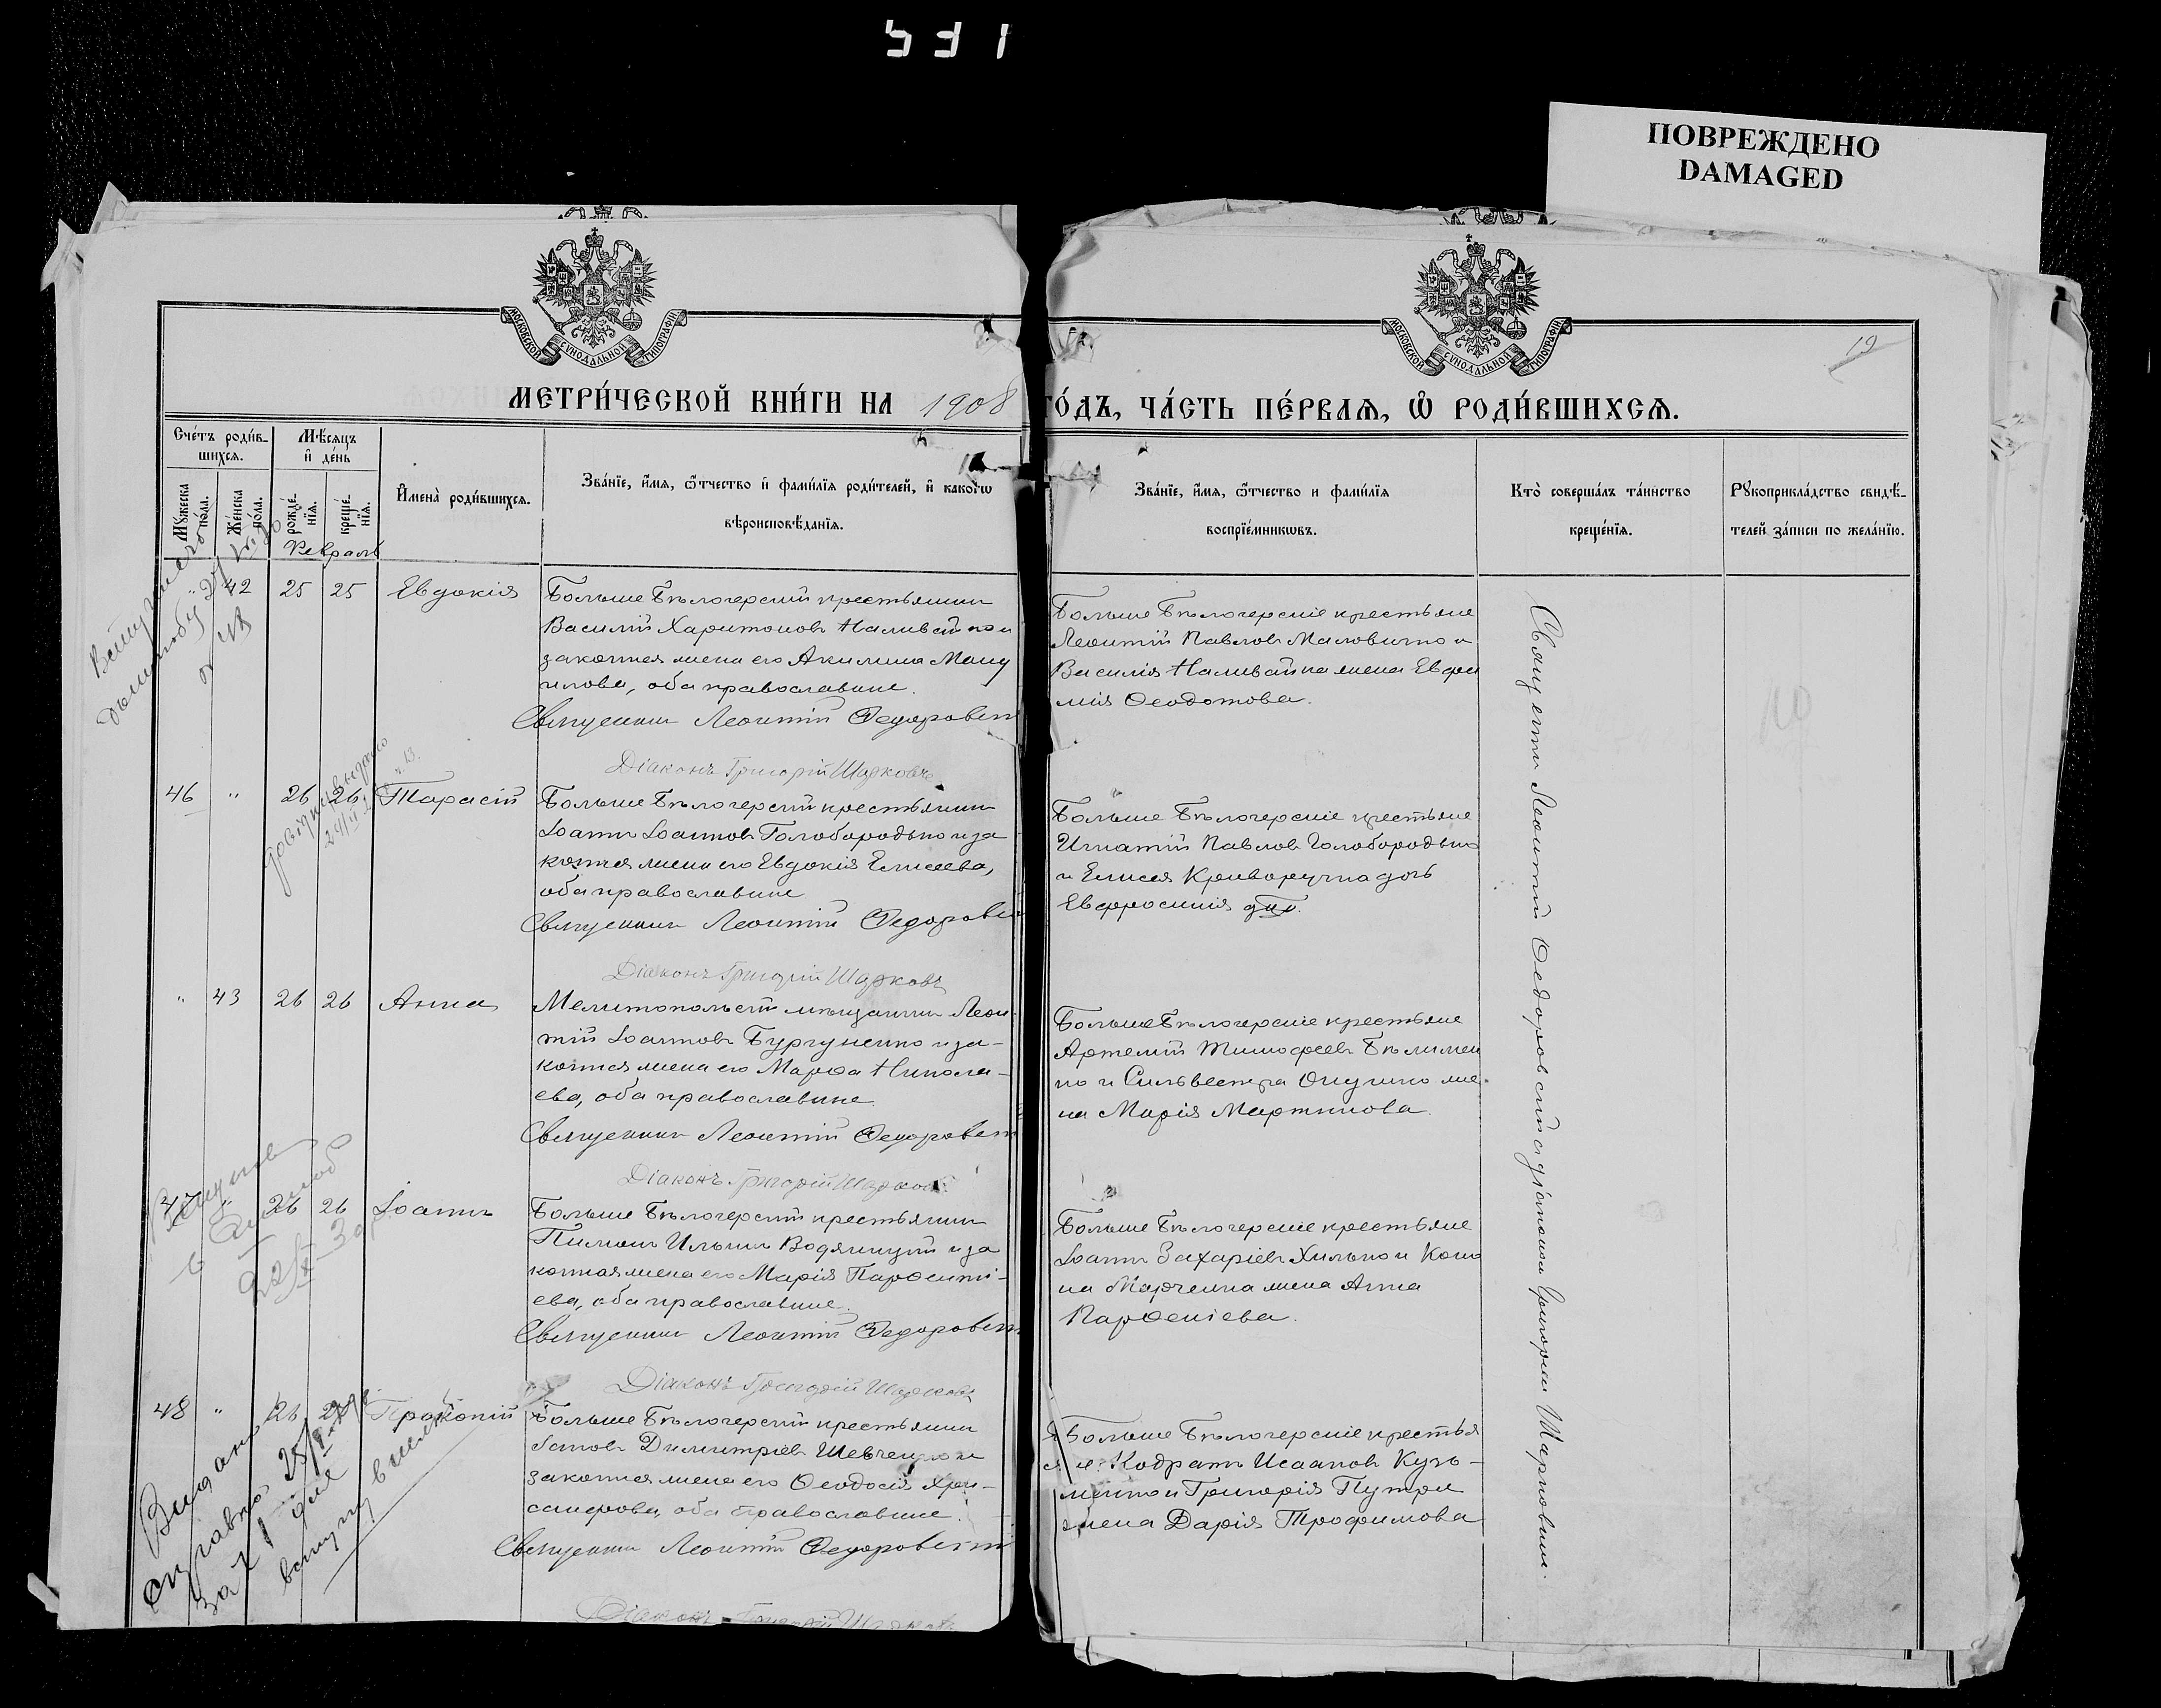 531
ПОВРЕЖДЕНО
DAMAGED
МОСКОВСКОЙ СУНОДАЛЬНОЙ ТИПОГРАФІИ
МОСКОВСКОЙ СУНОДАЛЬНОЙ ТИПОГРАФІИ
19
МЕТРИ́ЧЕСКОЙ КНИ́ГИ НА 1908 ГО́ДЪ, ЧА́СТЬ ПЕ́РВАЯ, Ѽ РОДИ́ВШИХСЯ.
Сче́тъ роди́в-
шихся.
Мѣ́сяцъ
и҆ де́нь
Мꙋ́жеска
по́ла.
Же́нска
по́ла.
рожде́-
нїя.
креще́-
нїя.
И҆мена̀ роди́вшихся.
Зва́нїе, и҆́мя, ѿ́тчество и҆ фами́лїя роди́телей, и҆ како́гѡ
вѣроисповѣ́данїя.
Зва́нїе, и҆́мя, ѿ́тчество и фами́лїя
воспрїе́мникѡвъ.
Кто̀ соверша́лъ та́инство
креще́нїя.
Рꙋкоприкла́дство свидѣ́-
телей за́писи по жела́нїю.
Февраль
" 42 25 25 Евдокія
Больше Бѣлозерскій крестьянинъ
Василій Харитоновъ Наливайко и
законная жена его Акилина Ману
илова, оба православные.
Священникъ Леонтій Федоровскій
Діаконъ Григорій Шарковъ
Больше Бѣлозерскіе крестьяне
Леонтій Павловъ Маловичко и
Василія Наливайка жена Евфи
мія Феодотова.
46 " 26 26 Тарасій
Больше Бѣлозерскій крестьянинъ
Іоаннъ Іоанновъ Голобородько и за
конная жена его Евдокія Елисеева,
оба православные
Священникъ Леонтій Федоровскій
Діаконъ Григорій Шарковъ
Больше Бѣлозерскіе крестьяне
Игнатій Павловъ Голобородько
и Елисея Криворучка дочь
Евфросинія
" 43 26 26 Анна
Мелитопольскій мѣщанинъ Леон-
тій Іоанновъ Бургуненко и за-
конная жена его Марфа Никола-
ева, оба православные.
Священникъ Леонтій Федоровскій
Діаконъ Григорій Шарковъ
Больше Бѣлозерскіе крестьяне
Артемій Тимофеевъ Бѣлимен
ко и Сильвестра Онушко же-
на Марія Мартинова.
47 " 26 26 Іоаннъ
Больше Бѣлозерскій крестьянинъ
Пименъ Ильинъ Водяницкій и за
конная жена его Марія Парфенті-
ева, оба православные.
Священникъ Леонтій Федоровскій
Діаконъ Григорій Шарковъ
Больше Бѣлозерскіе крестьяне
Іоаннъ Захаріевъ Хилько и Коно
на Марченка жена Анна
Парфеніева.
48 " 26 Прокопій
Больше Бѣлозерскій крестьянинъ
Іаковъ Димитріевъ Шевченко и
законная жена его Феодосія Хри-
санфова, оба православные.
Священникъ Леонтій Федоровскій
Діаконъ Григорій Шарковъ
Больше Бѣлозерскіе крестья
не Кодратъ Исааковъ Кузь-
менко и Григорія Путри
жена Дарія Трофимова
Священникъ Леонтій Федоровскій съ діакономъ Григоріемъ Шарковымъ.